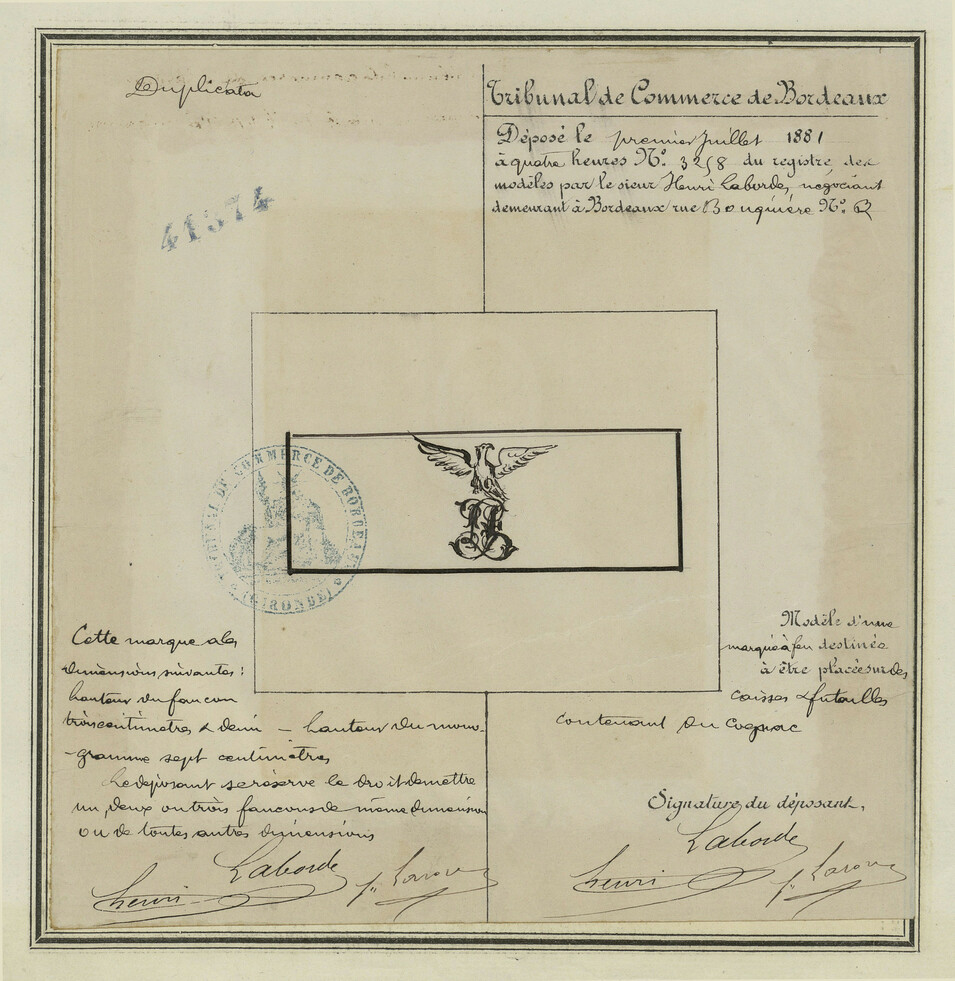 Duplicata
Tribunal de Commerce de Bordeaux
Déposé le premier Juillet 1881
à quatre heures No. 3258 du registre des
modèles par le sieur Henri Laborde, négociant
demeurant à Bordeaux rue Bouquière No.
41574
TRIBUNAL DE COMMERCE DE BORDEAUX
(GIRONDE)
Cette marque a les
dimensions suivantes:
hauteur du faucon
trois centimètres & demi - hauteur du mono-
-gramme sept centimètres
Le déposant se réserve le droit de mettre
un, deux ou trois faucons de même dimension
ou de toutes autres dimensions
henri Laborde
Modèle d'une
marque à feu destinée
à être placée sur des
caisses & futailles
contenant du Cognac
Signature du déposant,
henri Laborde